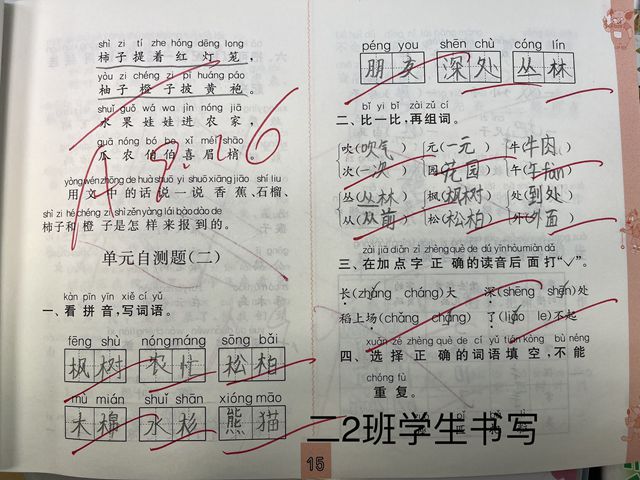 shì zi tí zhe hóng dēng long
柿子提着红灯笼，
yòu zi chéng zi pī huáng páo
柚子橙子披黄袍。
shuǐ guǒ wá wa jìn nóng jiā
水果娃娃进农家，
guā nóng bó bo xǐ méi shāo
瓜农伯伯喜眉梢。
A 9.26
yòng wén zhōng de huà shuō yi shuō xiāng jiāo shí liu
用文中的话说一说香蕉、石榴、
shì zi hé chéng zi shì zěn yàng lái bào dào de
柿子和橙子是怎样来报到的。
单元自测题(二)
kàn pīn yīn xiě cí yǔ
一、看拼音,写词语。
fēng shù nóng máng sōng bǎi
枫树 农忙 松柏
mù mián shuǐ shān xióng māo
木棉 水杉 熊猫
péng you shēn chù cóng lín
朋友 深处 丛林
bǐ yi bǐ zài zǔ cí
二、比一比,再组词。
吹(吹气) 元(一元) 牛(牛肉)
次(一次) 园(花园) 午(午fàn)
丛(丛林) 枫(枫树) 处(到处)
从(从前) 松(松柏) 外(外面)
zài jiā diǎn zì zhèng què de dú yīn hòu miàn dǎ
三、在加点字正确的读音后面打“✓”。
长(zhǎng cháng)大 深(shēng shēn)处
稻上场(chǎng cháng) 了(liǎo le)不起
xuǎn zé zhèng què de cí yǔ tián kòng bù néng
四、选择正确的词语填空,不能
chóng fù
重复。
二2班学生书写
15